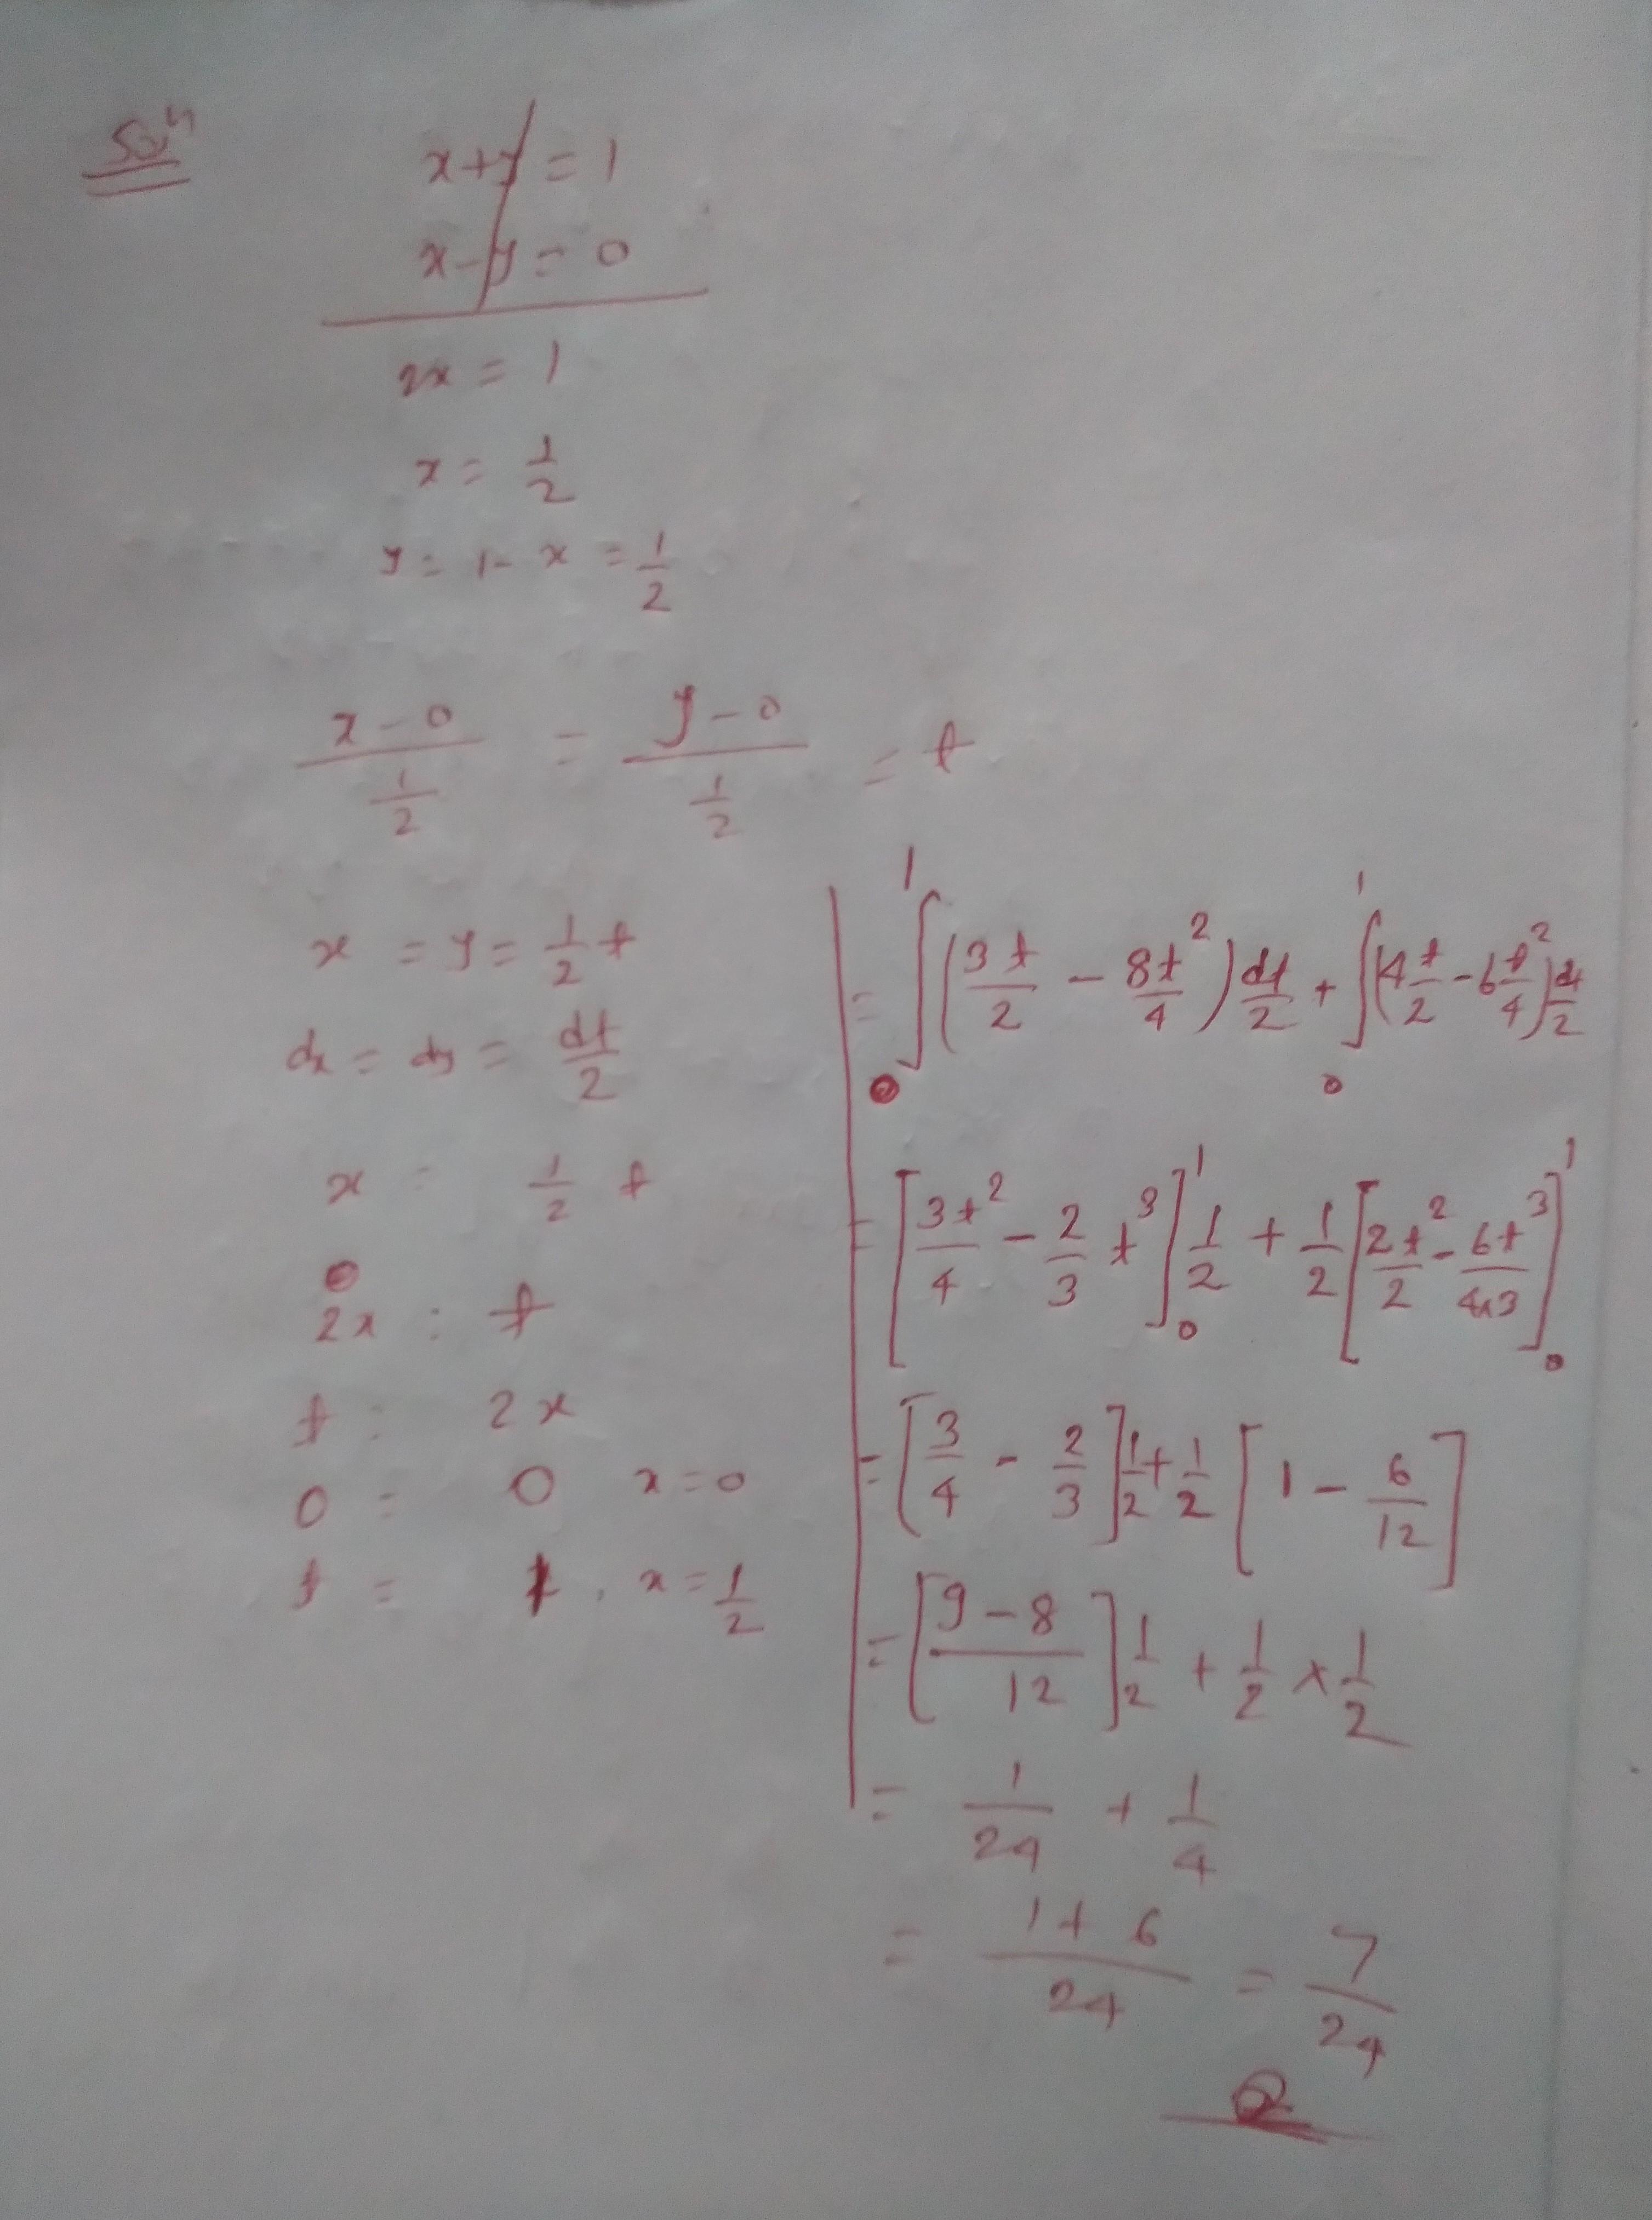 Solⁿ
x+y = 1
x-y = 0
2x = 1
x = 1/2
y = 1- x = 1/2
(x-0)/(1/2) = (y-0)/(1/2) = t
x = y = 1/2 t
dx = dy = dt/2
x = 1/2 t
2x = t
t = 2x
0 = 0 x=0
t = 1 . x=1/2
= ∫₀¹ (3t/2 - 8t²/4) dt/2 + ∫₀¹ (4t/2 - 6t²/4) dt/2
= [3t²/4 - 2/3 t³]₀¹ 1/2 + 1/2 [2t²/2 - 6t³/4x3]₀¹
= [3/4 - 2/3] 1/2 + 1/2 [1 - 6/12]
= [(9-8)/12] 1/2 + 1/2 x 1/2
= 1/24 + 1/4
= (1+6)/24 = 7/24